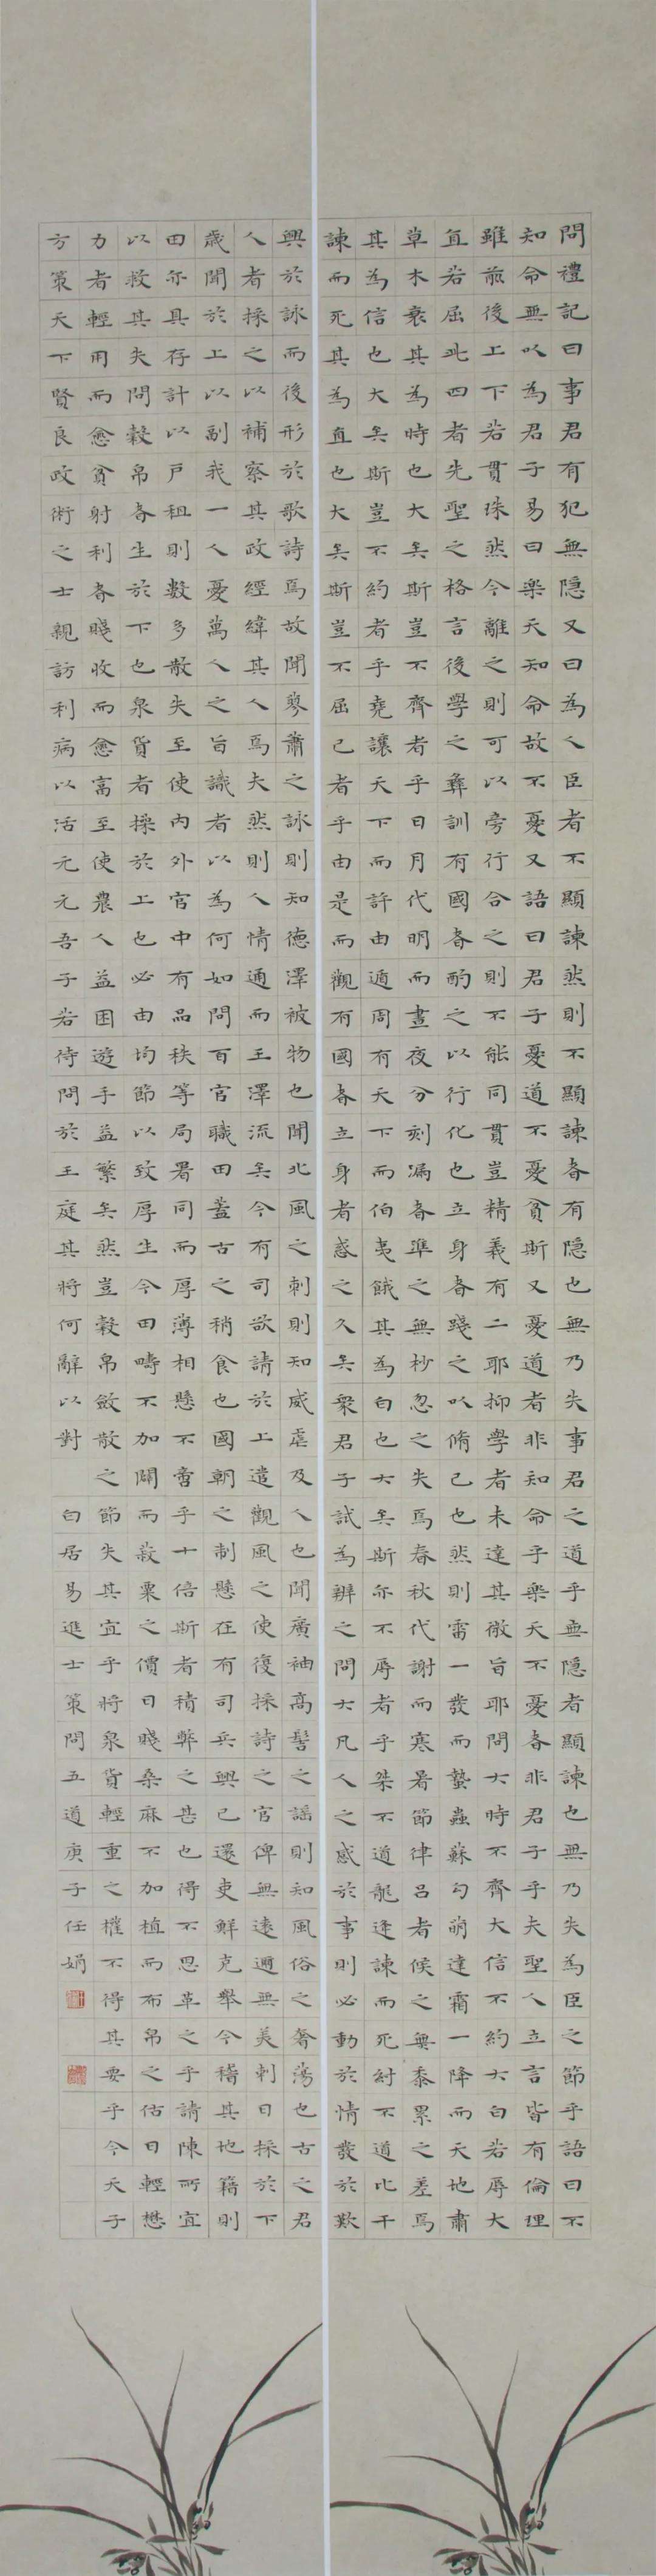 問禮記曰事君有犯無隱又曰為人臣者不顯諫然則不顯諫者有隱也無乃失事君之道乎無隱者顯諫也無乃失為臣之節乎語曰不
知命無以為君子易曰樂天知命故不憂又語曰君子憂道不憂貧斯又憂道者非知命乎樂天不憂者非君子乎夫聖人立言皆有倫理
雖前後上下若貫珠然今離之則可以旁行合之則不能同貫豈精義有二耶抑學者未達其微旨耶問大時不齊大信不約大白若辱大
直若屈此四者先聖之格言後學之彝訓有國者酌之以行化也立身者踐之以脩己也然則雷一發而蟄蟲蘇勾萌達霜一降而天地肅
草木衰其為時也大矣斯豈不齊者乎日月代明而晝夜分刻漏者準之無杪忽之失焉春秋代謝而寒暑節律呂者候之無黍累之差焉
其為信也大矣斯豈不約者乎堯讓天下而許由遁周有天下而伯夷餓其為白也大矣斯亦不辱者乎桀不道龍逢諫而死紂不道比干
諫而死其為直也大矣斯豈不屈己者乎由是而觀有國者立身者惑之久矣眾君子試為辨之問大凡人之感於事則必動於情發於歎
興於詠而後形於歌詩焉故聞蓼蕭之詠則知德澤被物也聞北風之刺則知威虐及人也聞廣袖高髻之謠則知風俗之奢蕩也古之君
人者採之以補察其政經緯其人焉夫然則人情通而王澤流矣今有司欲請於上遣觀風之使復採詩之官俾無遠邇無美刺日採於下
歲聞於上以副我一人憂萬人之旨識者以為何如問百官職田蓋古之稍食也國朝之制懸在有司兵興已還吏鮮克舉今稽其地籍則
田亦具存計以戶租則數多散失至使內外官中有品秩等局署同而厚薄相懸不啻乎十倍斯者積弊之甚也得不思革之乎請陳所宜
以救其失問穀帛者生於下也泉貨者操於上也必由均節以致厚生今田疇不加闢而菽粟之價日賤桑麻不加植而布帛之估日輕懋
力者輕用而愈貧射利者賤收而愈富至使農人益困遊手益繁矣然豈穀帛斂散之節失其宜乎將泉貨輕重之權不得其要乎今天子
方策天下賢良政術之士親訪利病以活元元吾子若待問於王庭其將何辭以對 白居易進士策問五道庚子任娟